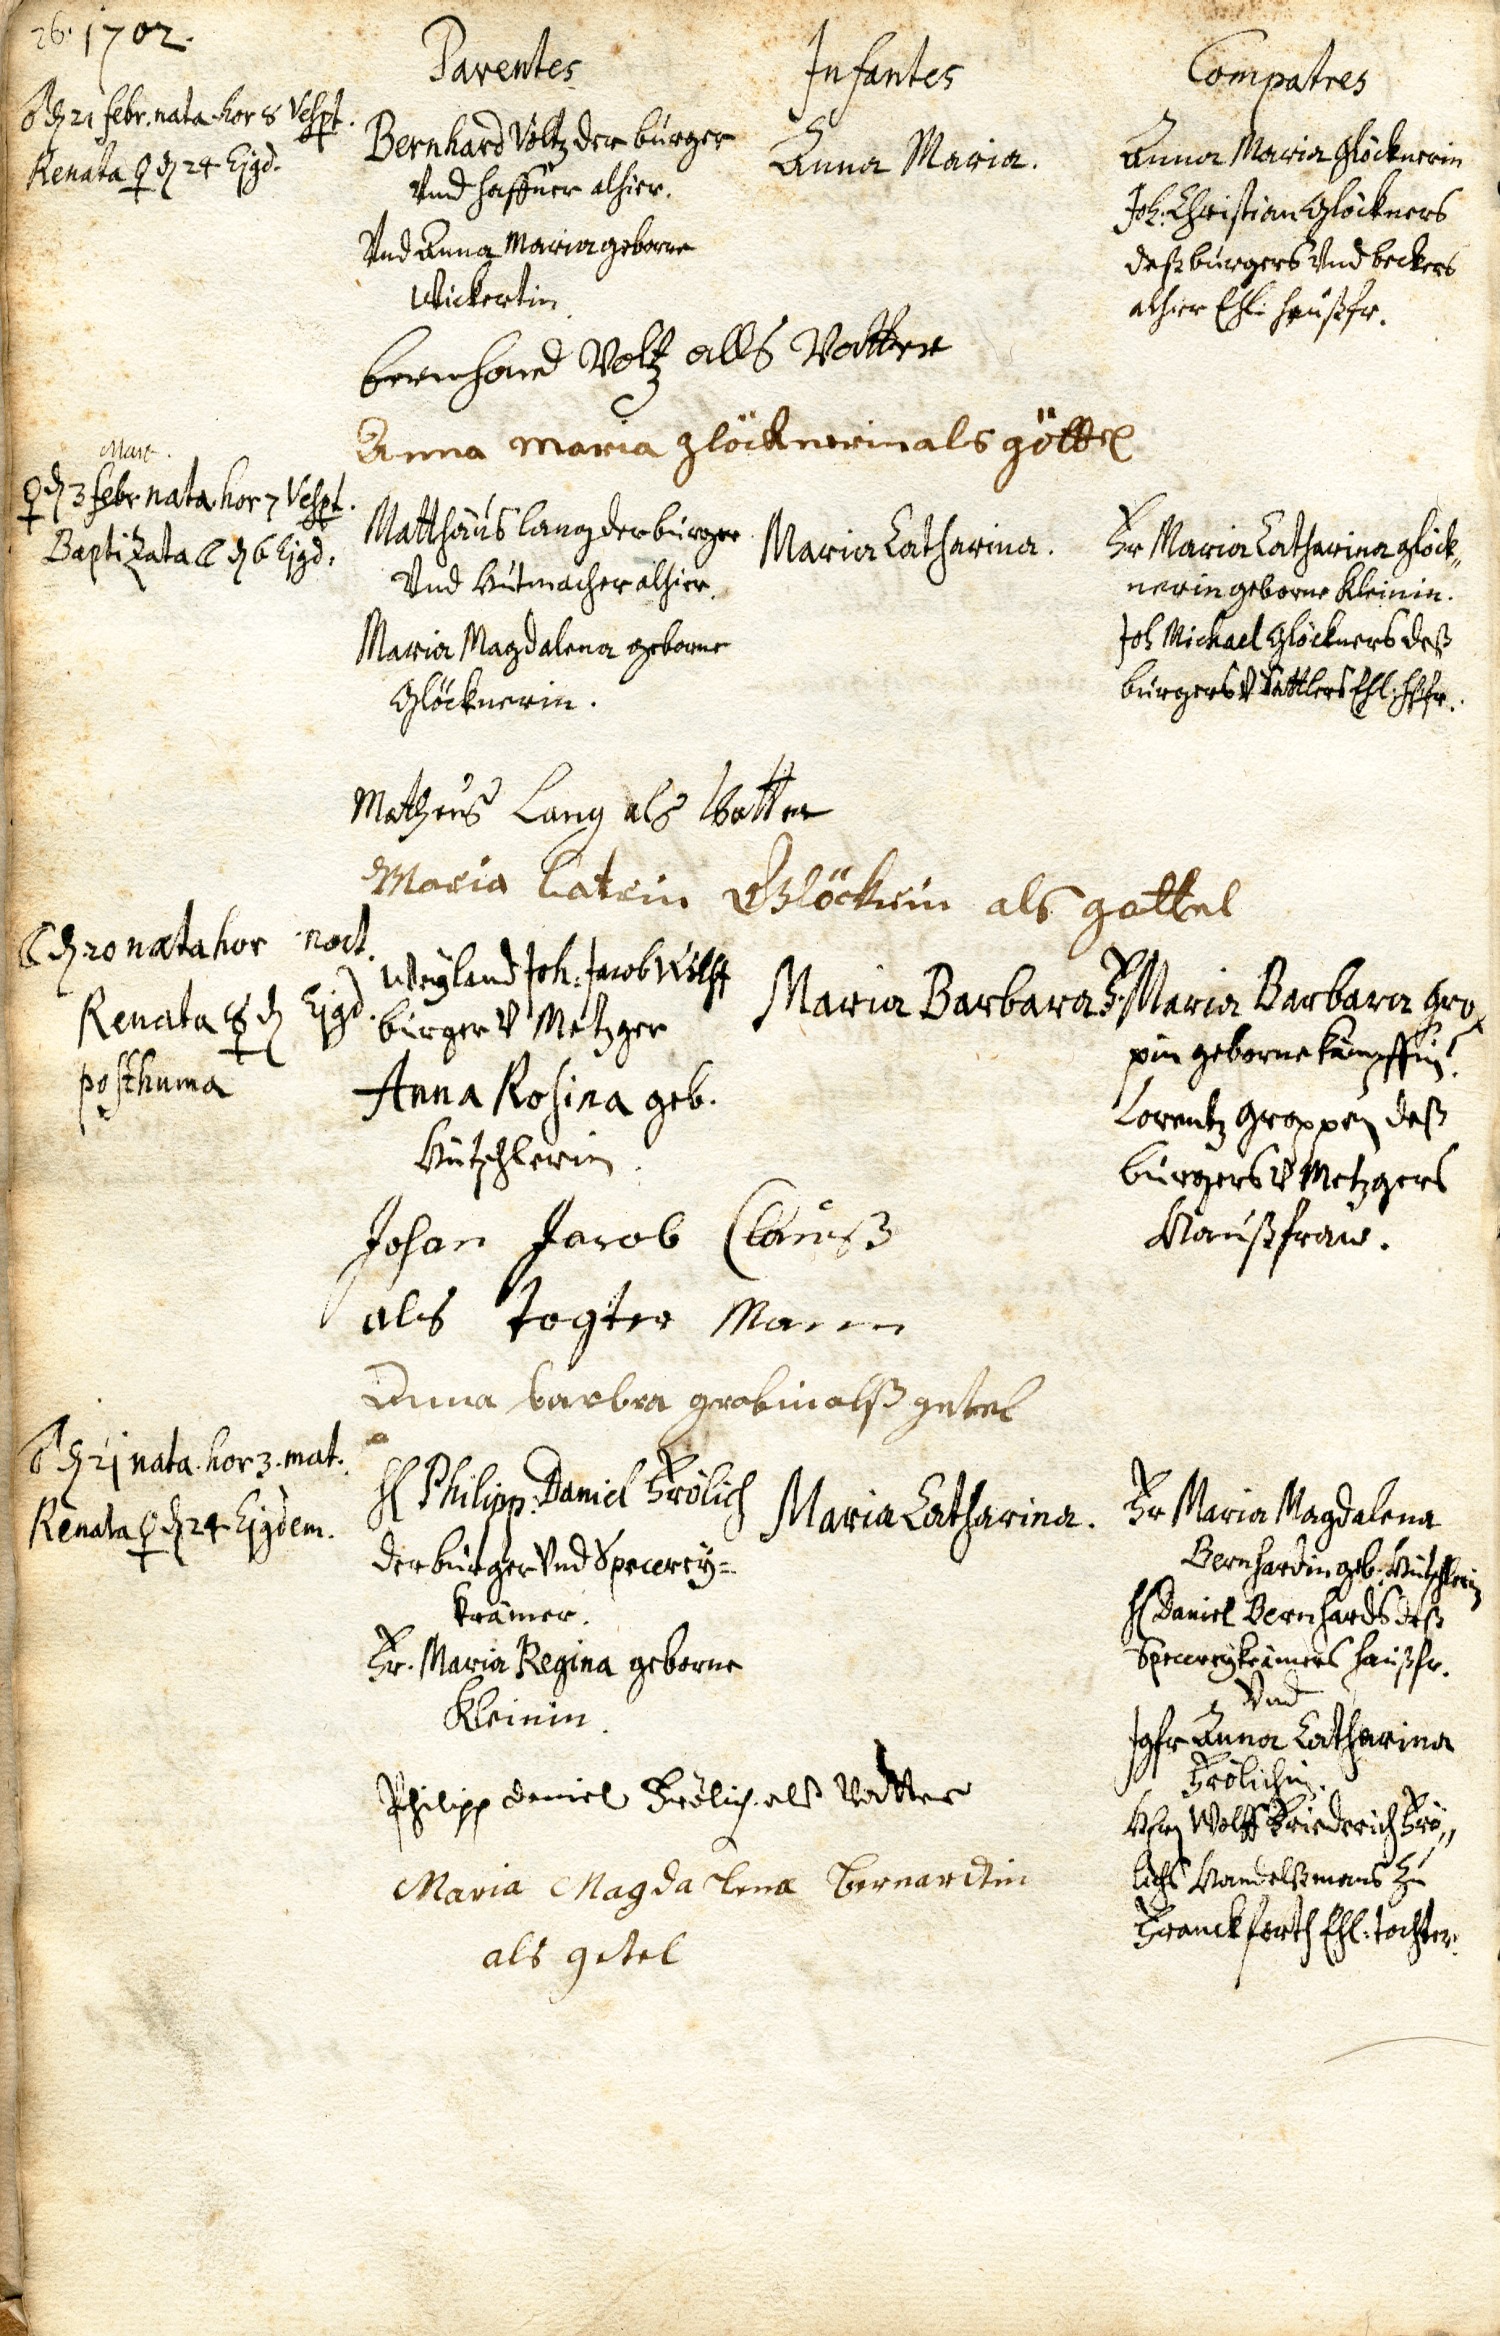 26. 1702.
Parentes
Infantes
Compatres
♂ 21 febr. nata hor 8 Vespt.
Renata ♀ 24 Ejgd.
Bernhard Voltz der burger
Vnd haffner alhier.
Vnd Anna Maria geborne
Wickertin.
Anna Maria.
Anna Maria Glöcknerin
Joh: Christian Glöckners
deß burgers Vnd beckers
alhier Ehl: haußfr.
bernhard Voltz alls Vatter
Anna maria glöcknerin als göttel
Mart.
♀ 3 febr nata hor 7 Vespt.
Baptizata ☾ 6 Ejgd.
Matthäus lang der burger
Vnd Hutmacher alhier.
Maria Magdalena geborne
Glöcknerin.
Maria Catharina.
Fr Maria Catharina glöck„
nerin geborne Kleinin.
Joh Michael Glöckners deß
burgers V Sattlers Ehl: hßfr.
Matheus Lang als Vatter
Maria Catrin Glöcknin als gottel
☾ 20 nata hor noct.
Renata ☿ Ejgd.
posthuma
Weyland Joh: Jacob Wolff
burger V Metzger
Anna Rosina geb.
Hutschlerin.
Maria Barbara
Fr Maria Barbara Gro
pin geborne Kämpffin.
Lorentz Groppen deß
burgers V Metzgers
Haußfraw.
Johan Jacob Clauß
als togter Mann
Anna barbra grobin alß getel
♂ 21 nata hor 3. mat.
Renata ♀ 24 Ejgdem.
H Philipp: Daniel Frölich
der burger Vnd Specerey=
krämer.
Fr. Maria Regina geborne
Kleinin.
Maria Catharina.
Fr Maria Magdalena
Bernhardin geb: Hutschlerin
H Daniel Bernhards deß
Specereykrämers haußfr.
Vnd
Jgfr Anna Catharina
Frölichin.
Hn Wolff Friederich Frö„
lichs Handelßmans Zu
Franckforth Ehl: tochter.
Philipp Daniel Frölich als Vatter
Maria Magdalena bernardtin
als getel